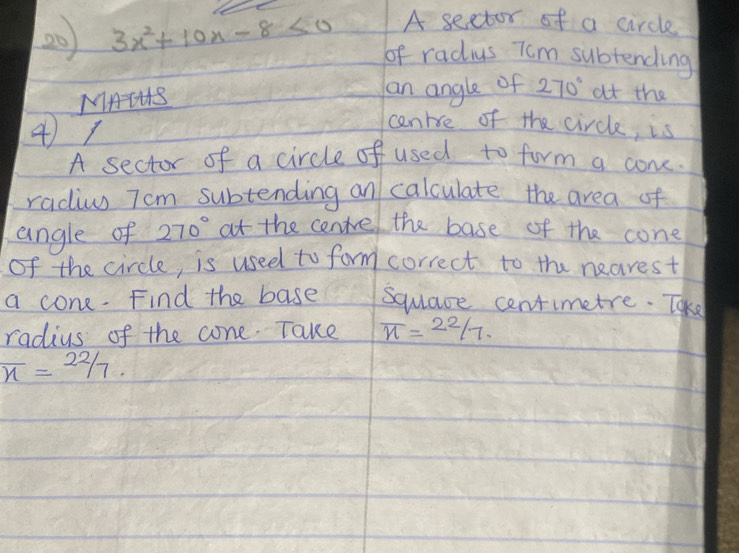 20) 3x² + 10x - 8 ≤ 0
MATHS
4) 1
A sector of a circle of
radius 7cm subtending an
angle of 270° at the centre
of the circle, is used to form
a cone. Find the base
radius of the cone. Take
π = 22/7.
A sector of a circle
of radius 7cm subtending
an angle of 270° at the
centre of the circle, is
used to form a cone.
calculate the area of
the base of the cone
correct to the nearest
square centimetre. Take
π = 22/7.